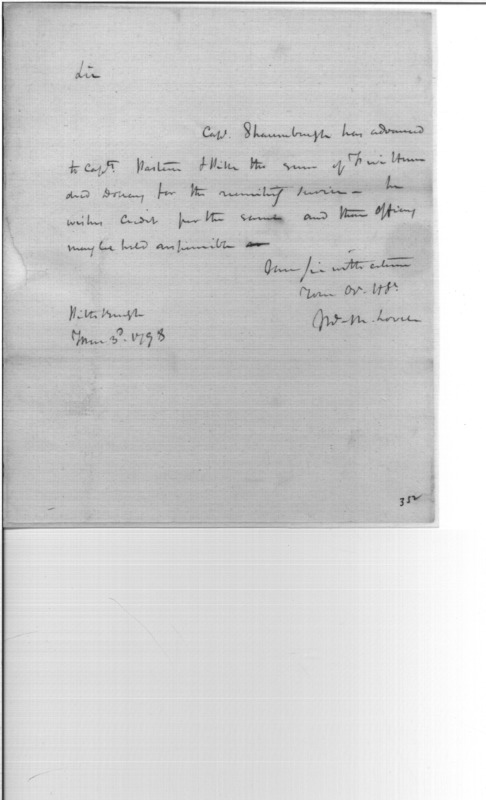 Sir
Capt. Shaumburgh has advanced
to Capt. Pasteur & Pike the sum of Five Hun
dred Dollars for the recruiting service – he
wishes credit for the same and those officers
may be held responsible –
I am sir with esteem
Your Ob. H St.
Jno. M. Lovell
Pittsburgh
3d. 1798
352